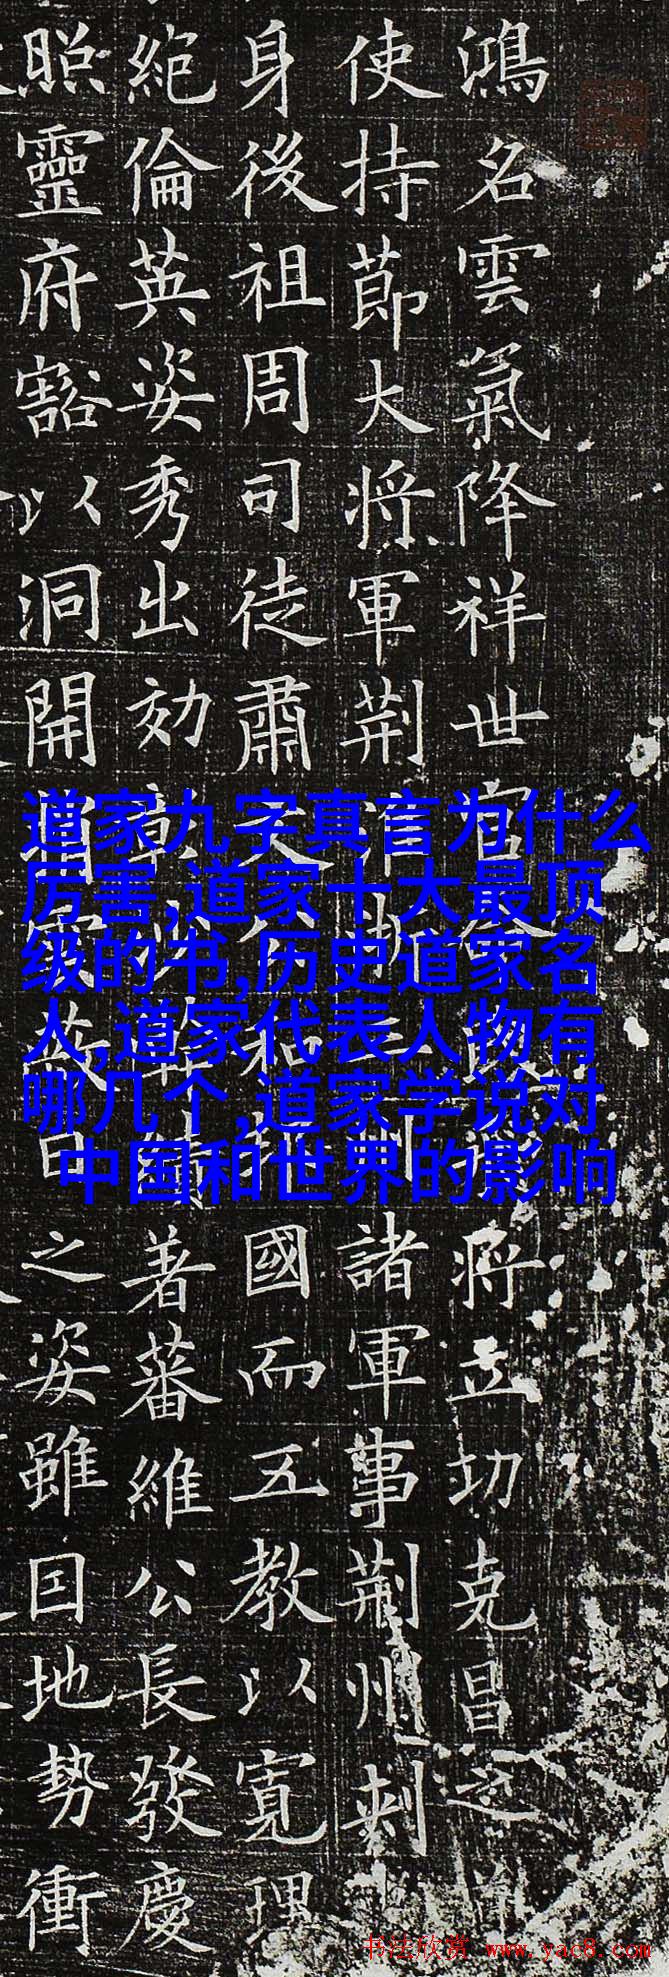 鴻名雲氣降祥世將立功克昌之
使持節大將軍荊諸軍事荊州刺
身後祖周司徒肅國而五教以寬理
絕倫英姿秀出効著蕃維公長發慶
照靈府豁以洞開之姿雖囯地势衝
道家九字真言为什么
厉害,道家十大最顶
级的书,历史道家名
人,道家代表人物有
哪几个,道家学说对
中国和世界的影响
书法欣赏 www.yac8.com